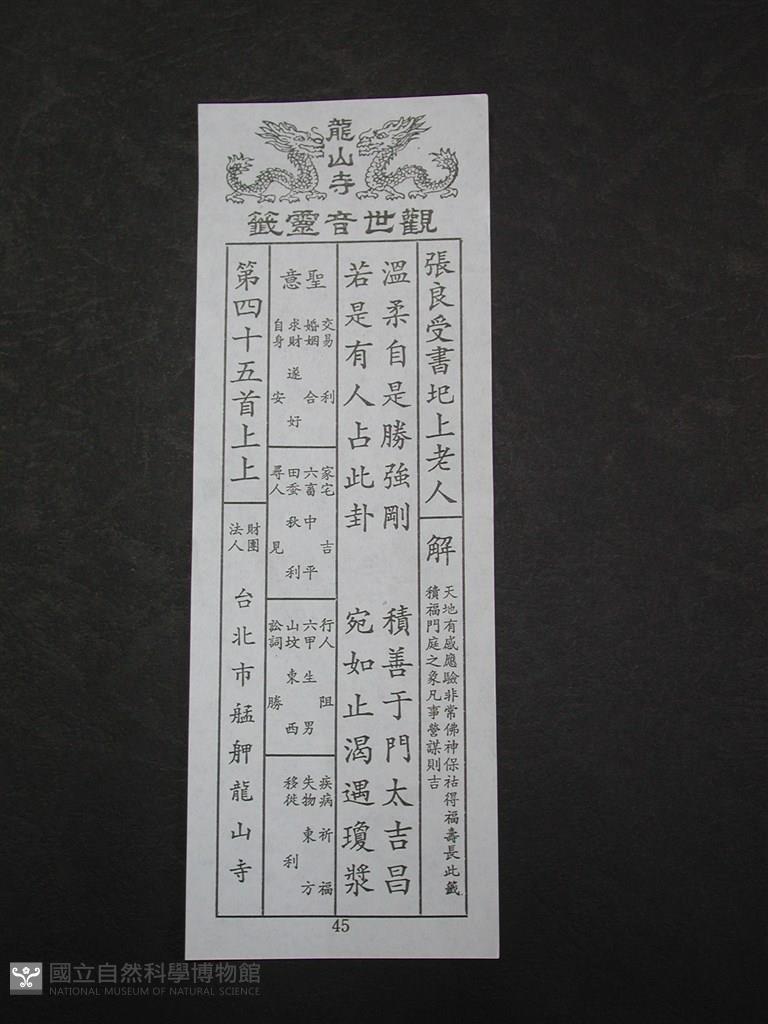 龍山寺
觀世音靈籤
張良受書圯上老人
解
天地有感應驗非常佛神保祐得福壽長此籤
積福門庭之象凡事營謀則吉
溫柔自是勝強剛 積善于門太吉昌
若是有人占此卦 宛如止渴遇瓊漿
聖意
交易 利
婚姻 合
求財 遂好
自身 安
家宅 吉
六畜 中平
田蚕 秋利
尋人 見
行人 阻
六甲 生男
山坟 東西
訟詞 勝
疾病 祈福
失物 東方
移徙 利
第四十五首上上
財團法人
台北市艋舺龍山寺
45
國立自然科學博物館
NATIONAL MUSEUM OF NATURAL SCIENCE